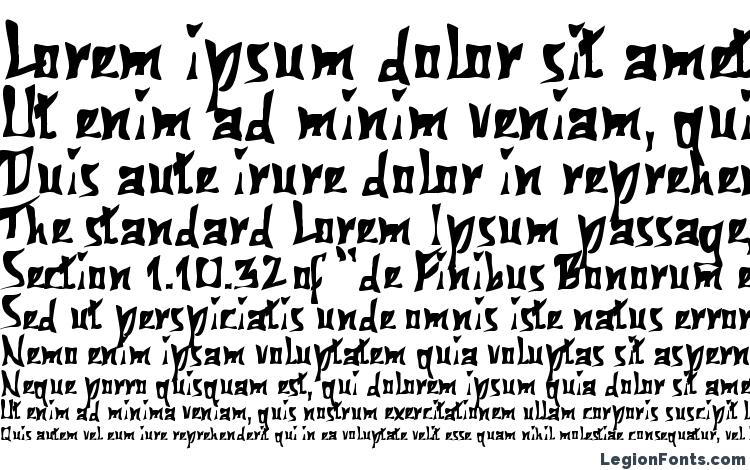 Lorem ipsum dolor sit amet
Ut enim ad minim veniam, qui
Duis aute irure dolor in reprehen
The standard Lorem Ipsum passage,
Section 1.10.32 of "de Finibus Bonorum e
Sed ut perspiciatis unde omnis iste natus error
Nemo enim ipsam voluptatem quia voluptas sit aspern
Neque porro quisquam est, qui dolorem ipsum quia dolor sit ame
Ut enim ad minima veniam, quis nostrum exercitationem ullam corporis suscipit l
Quis autem vel eum iure reprehenderit qui in ea voluptate velit esse quam nihil molestiae consequatur, vel
LegionFonts.com